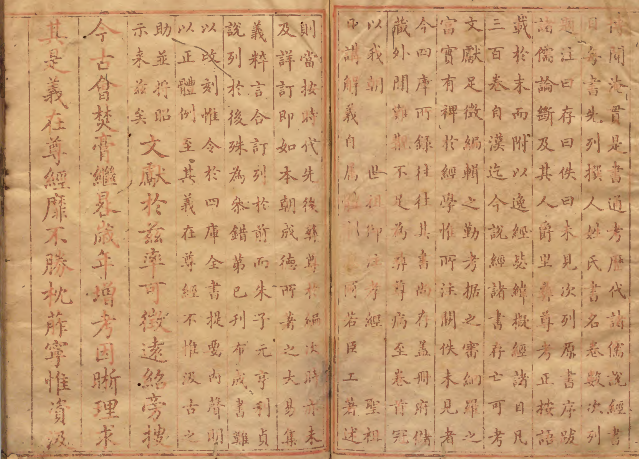 淹貫是書通考歷代諸儒說經書
目每書先列撰人姓氏書名卷數次列
題注曰存曰佚曰未見次列原書序跋
諸儒論斷及其人爵里彝尊考正按語
載於末而附以逸經毖緯擬經諸目凡
三百卷自漢迄今說經諸書存亡可考
文獻足徵編輯之勤考据之審網羅之
富實有裨於經學惟所注闕佚未見者
今四庫所錄往往其書尚存蓋冊府儲
藏外間難觀不足為彝尊病至卷首冠
以我朝 世祖御注孝經 聖祖
日講解義自屬 何若臣工著述
則當按時代先後彝尊於編次時亦未
及詳訂即如本朝成德所著之大易集
義粹言合訂列於前而朱子元亨利貞
說列於後殊為參錯第已刊布成書難
以改刻惟令於四庫全書提要內聲明
以正體例至其義在尊經不惟汲古之
助並將昭
示來茲矣 文獻於茲率可徵遠紹旁搜
今古曾焚膏繼晷歲年增考因晰理求
其是義在尊經靡不勝枕葄寧惟資汲